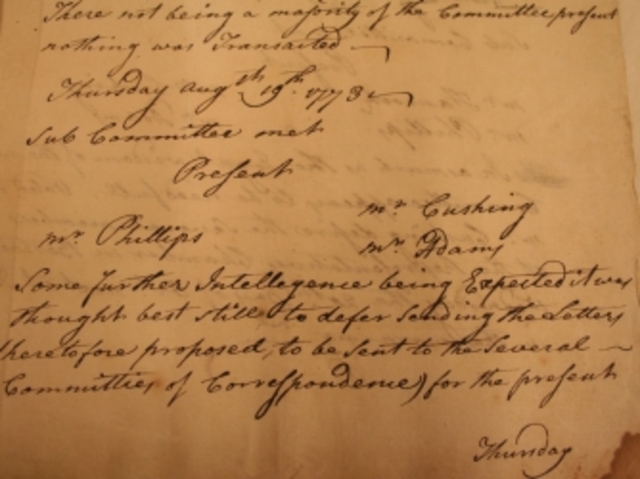 There not being a majority of the Committee present
nothing was Transacted
Thursday augst 19th 1773
Sub Committee met
Present
mr Cushing
mr Phillips
mr Adams
Some further Intellegence being Expected it was
thought best still to defer sending the Letters
heretofore proposed, to be sent to the Several
Committies of Correspondence) for the present
Thursday